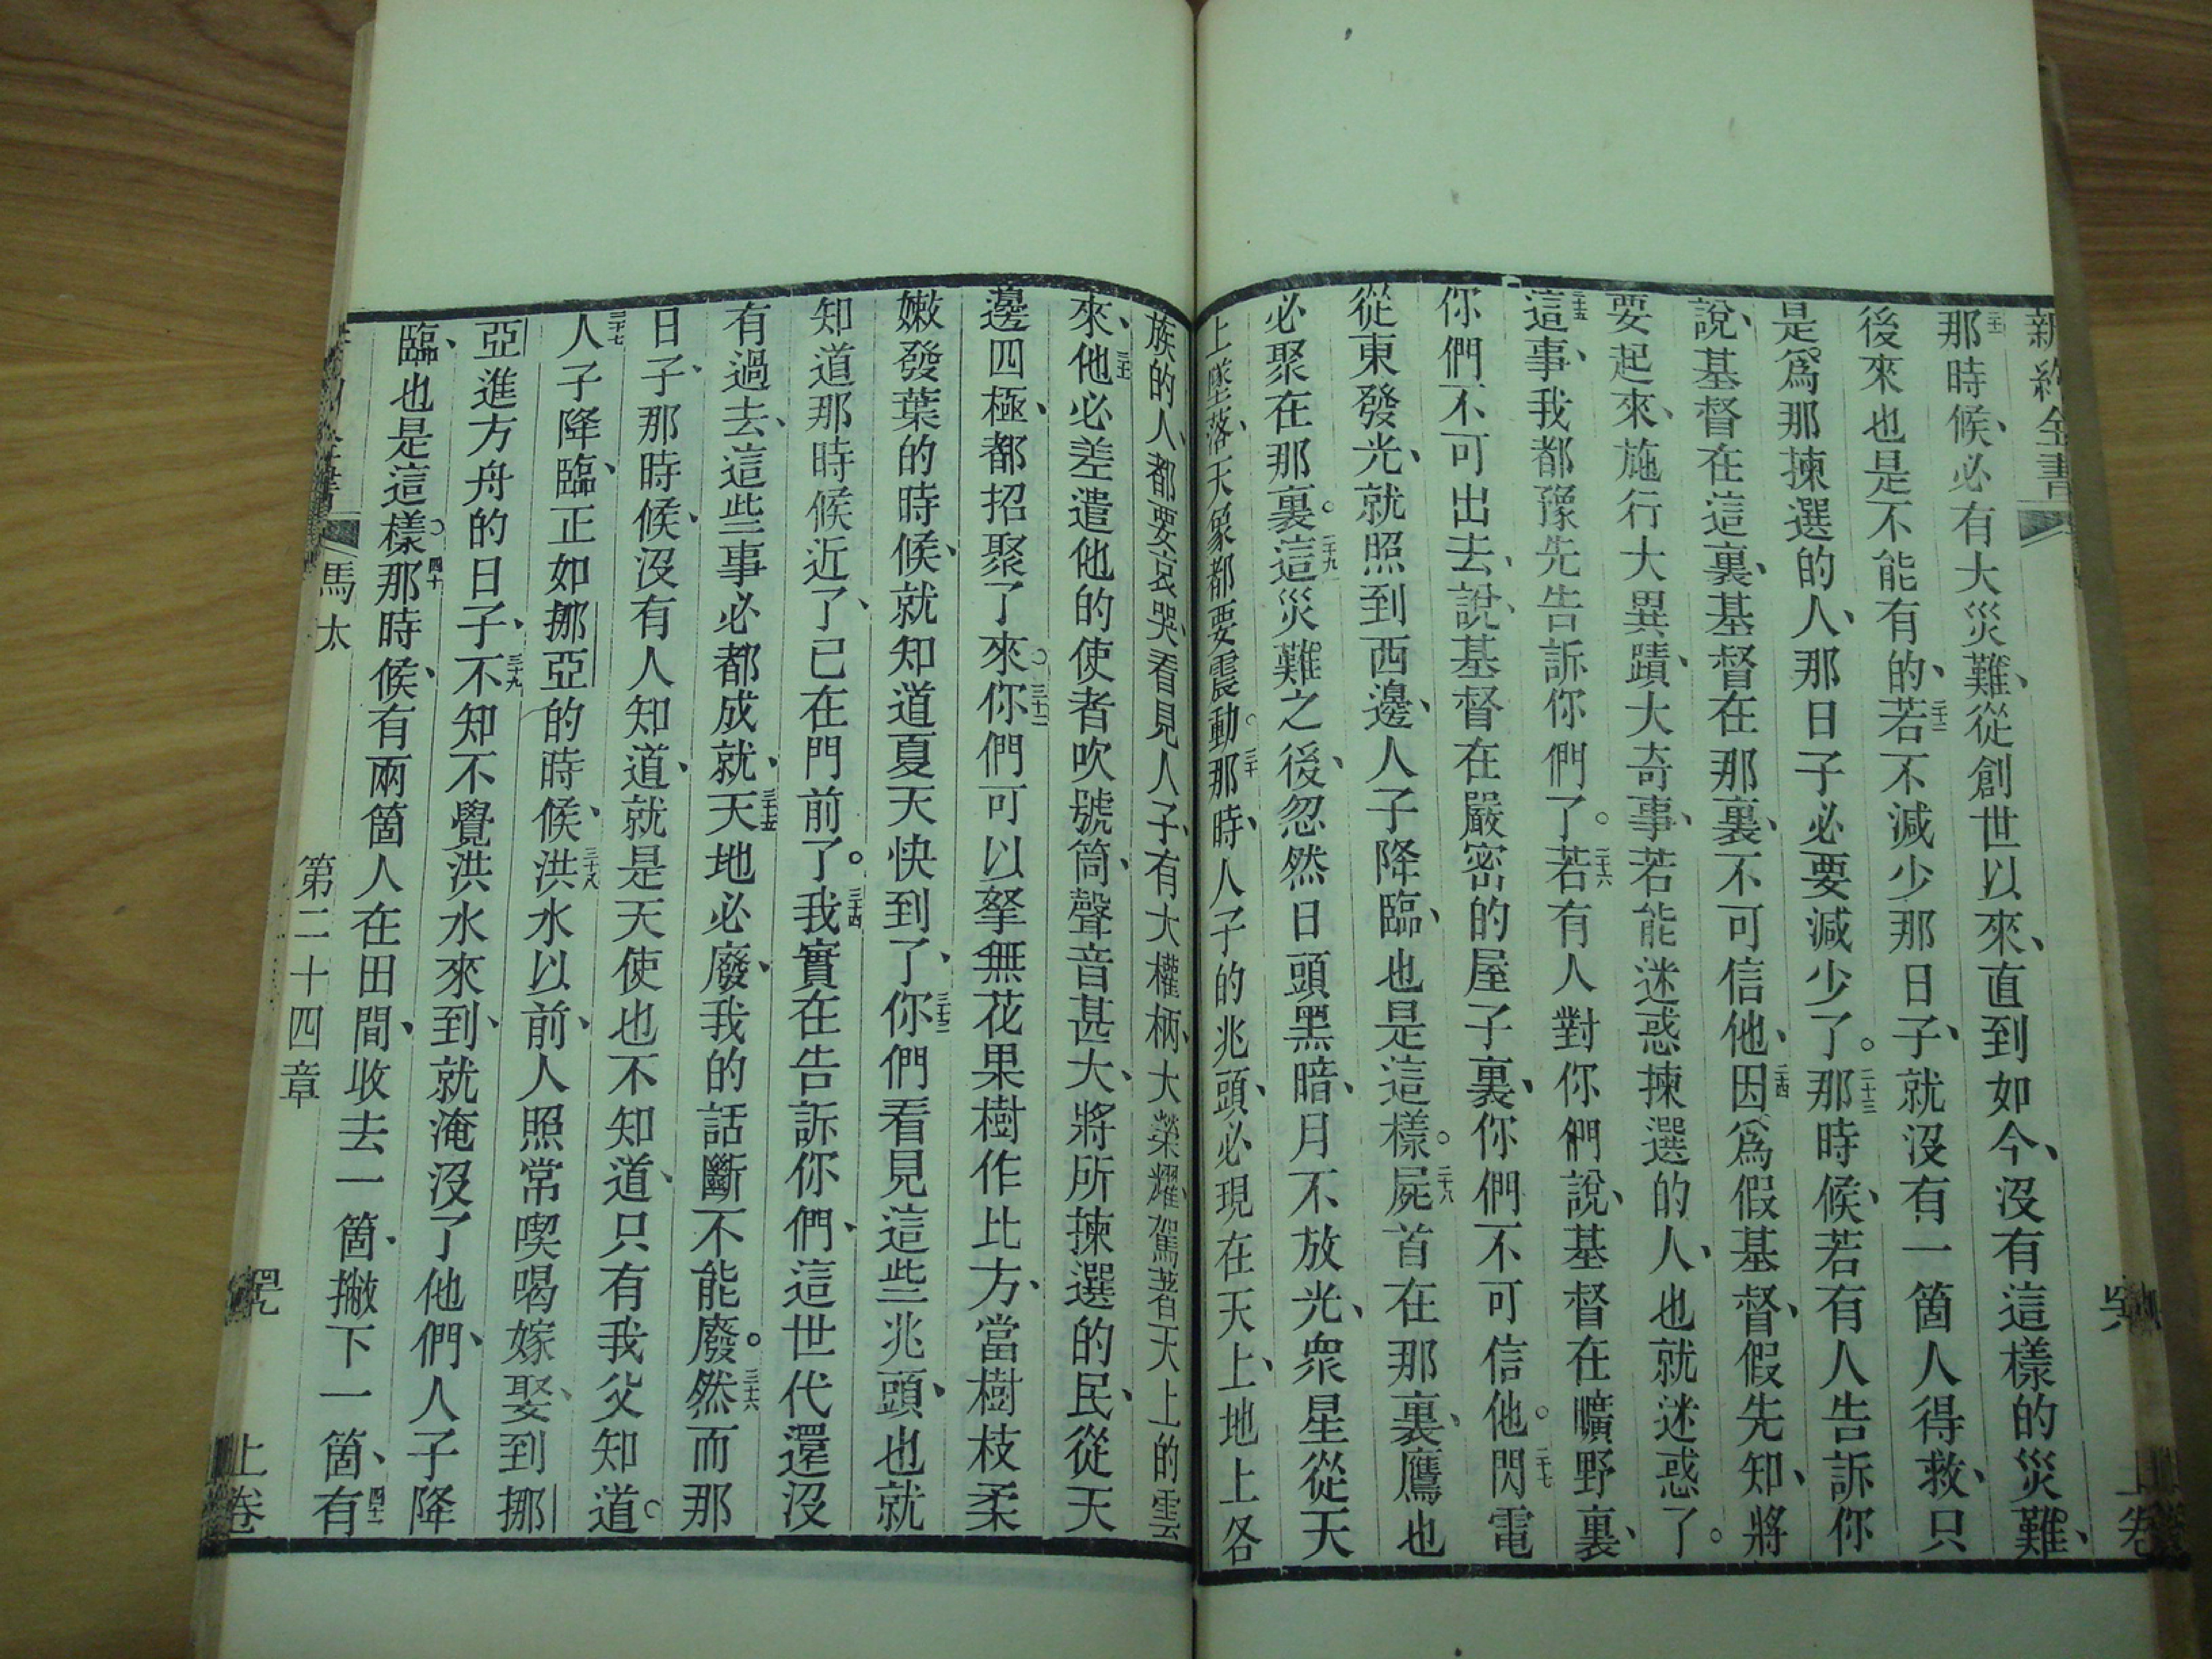 新約全書
上卷
二十一那時候、必有大災難、從創世以來、直到如今、沒有這樣的災難、
後來也是不能有的、二十二若不減少那日子、就沒有一箇人得救、只
是爲那揀選的人、那日子必要減少了。二十三那時候、若有人告訴你
說、基督在這裏、基督在那裏、不可信他、二十四因爲假基督、假先知、將
要起來、施行大異蹟、大奇事、若能迷惑揀選的人、也就迷惑了。
二十五這事、我都豫先告訴你們了。二十六若有人對你們說、基督在曠野裏、
你們不可出去、說、基督在嚴密的屋子裏、你們不可信他。二十七閃電
從東發光、就照到西邊、人子降臨、也是這樣。二十八屍首在那裏、鷹也
必聚在那裏。二十九這災難之後、忽然日頭黑暗、月不放光、眾星從天
上墜落、天象都要震動。三十那時、人子的兆頭、必現在天上、地上各
族的人、都要哀哭、看見人子、有大權柄、大榮耀、駕著天上的雲
來、三十一他必差遣他的使者吹號筒、聲音甚大、將所揀選的民、從天
邊四極、都招聚了來。三十二你們可以拏無花果樹作比方、當樹枝柔
嫩發葉的時候、就知道夏天快到了、三十三你們看見這些兆頭、也就
知道那時候近了、已在門前了。三十四我實在告訴你們、這世代還沒
有過去、這些事必都成就、三十五天地必廢、我的話斷不能廢。三十六然而那
日子、那時候、沒有人知道、就是天使也不知道、只有我父知道。
三十七人子降臨、正如挪亞的時候、三十八洪水以前、人照常喫喝嫁娶、到挪
亞進方舟的日子、三十九不知不覺洪水來到、就淹沒了他們、人子降
臨、也是這樣。四十那時候、有兩箇人在田間、收去一箇、撇下一箇、四十一有
馬太
第二十四章
上卷